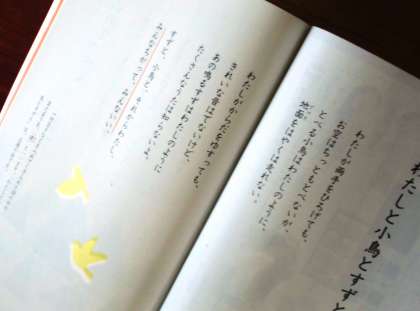 わたしと小鳥とすずと
わたしが両手をひろげても、
お空はちっともとべないが、
とべる小鳥はわたしのように、
地面をはやくは走れない。
わたしがからだをゆすっても、
きれいな音はでないけど、
あの鳴るすずはわたしのように
たくさんなうたは知らないよ。
すずと、小鳥と、それからわたし、
みんなちがって、みんないい。